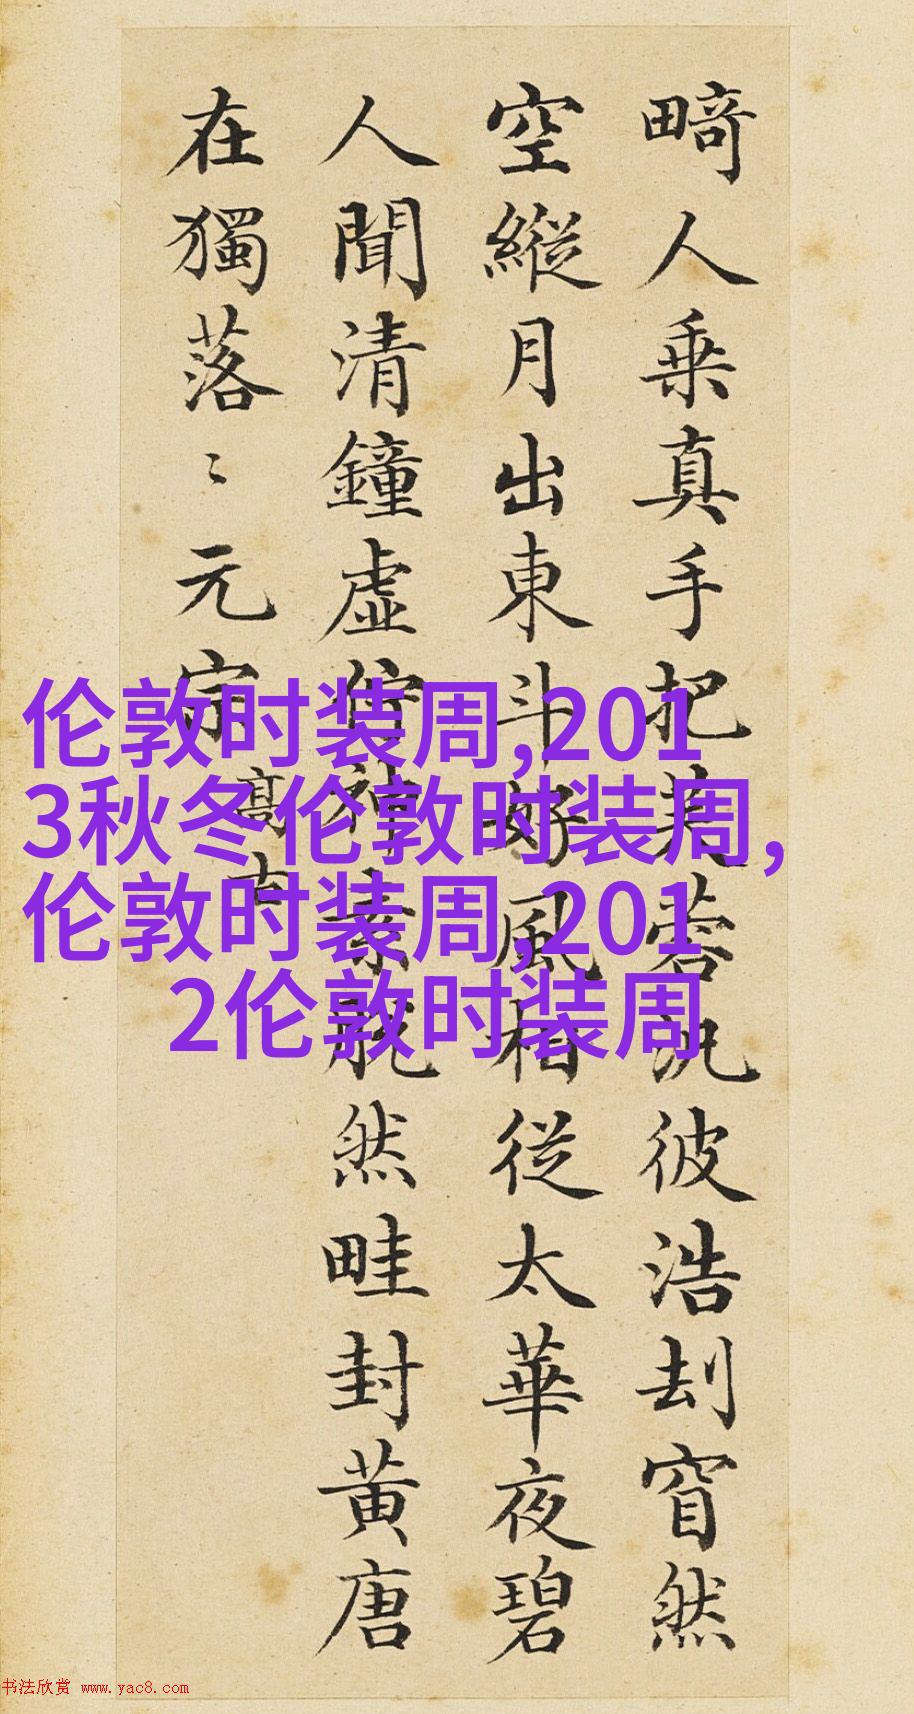 畸人乗真手把芙蓉汎彼浩刦窅然
空縱月出東斗好風相從太華夜碧
人聞清鐘虚佇神素脱然畦封黄唐
在獨落〻元宗
高古
伦敦时装周,201
3秋冬伦敦时装周,
伦敦时装周,201
2伦敦时装周
书法欣赏 www.yac8.com